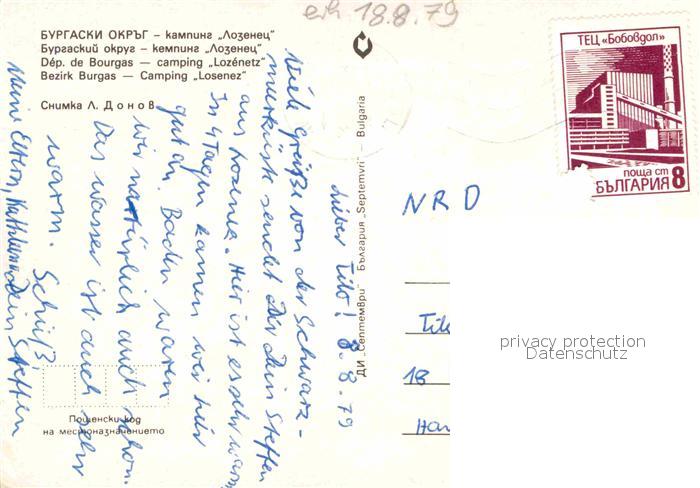 erh. 18.8.79
БУРГАСКИ ОКРЪГ – кампинг „Лозенец“
Бургаский округ – кемпинг „Лозенец“
Dép. de Bourgas — camping „Lozénetz“
Bezirk Burgas — Camping „Losenez“
Снимка Л. Донов
Lieber Tilo! 8.8.79
Viele Grüße von der Schwarz-
meerküste sendet Dir Dein Steffen
aus Lozenez. Hier ist es sehr warm
In 4 Tagen kamen wir hier
gut an. Baden waren
wir natürlich auch schon.
Das Wasser ist auch sehr
warm. Schüß!
Dein Steffen
Meine Eltern,
Пощенски код
на местоназначението
ДИ „Септември“ България „Septemvri“ – Bulgaria
ТЕЦ „Бобовдол“
поща ст
БЪЛГАРИЯ 8
NRD
18
privacy protection
Datenschutz